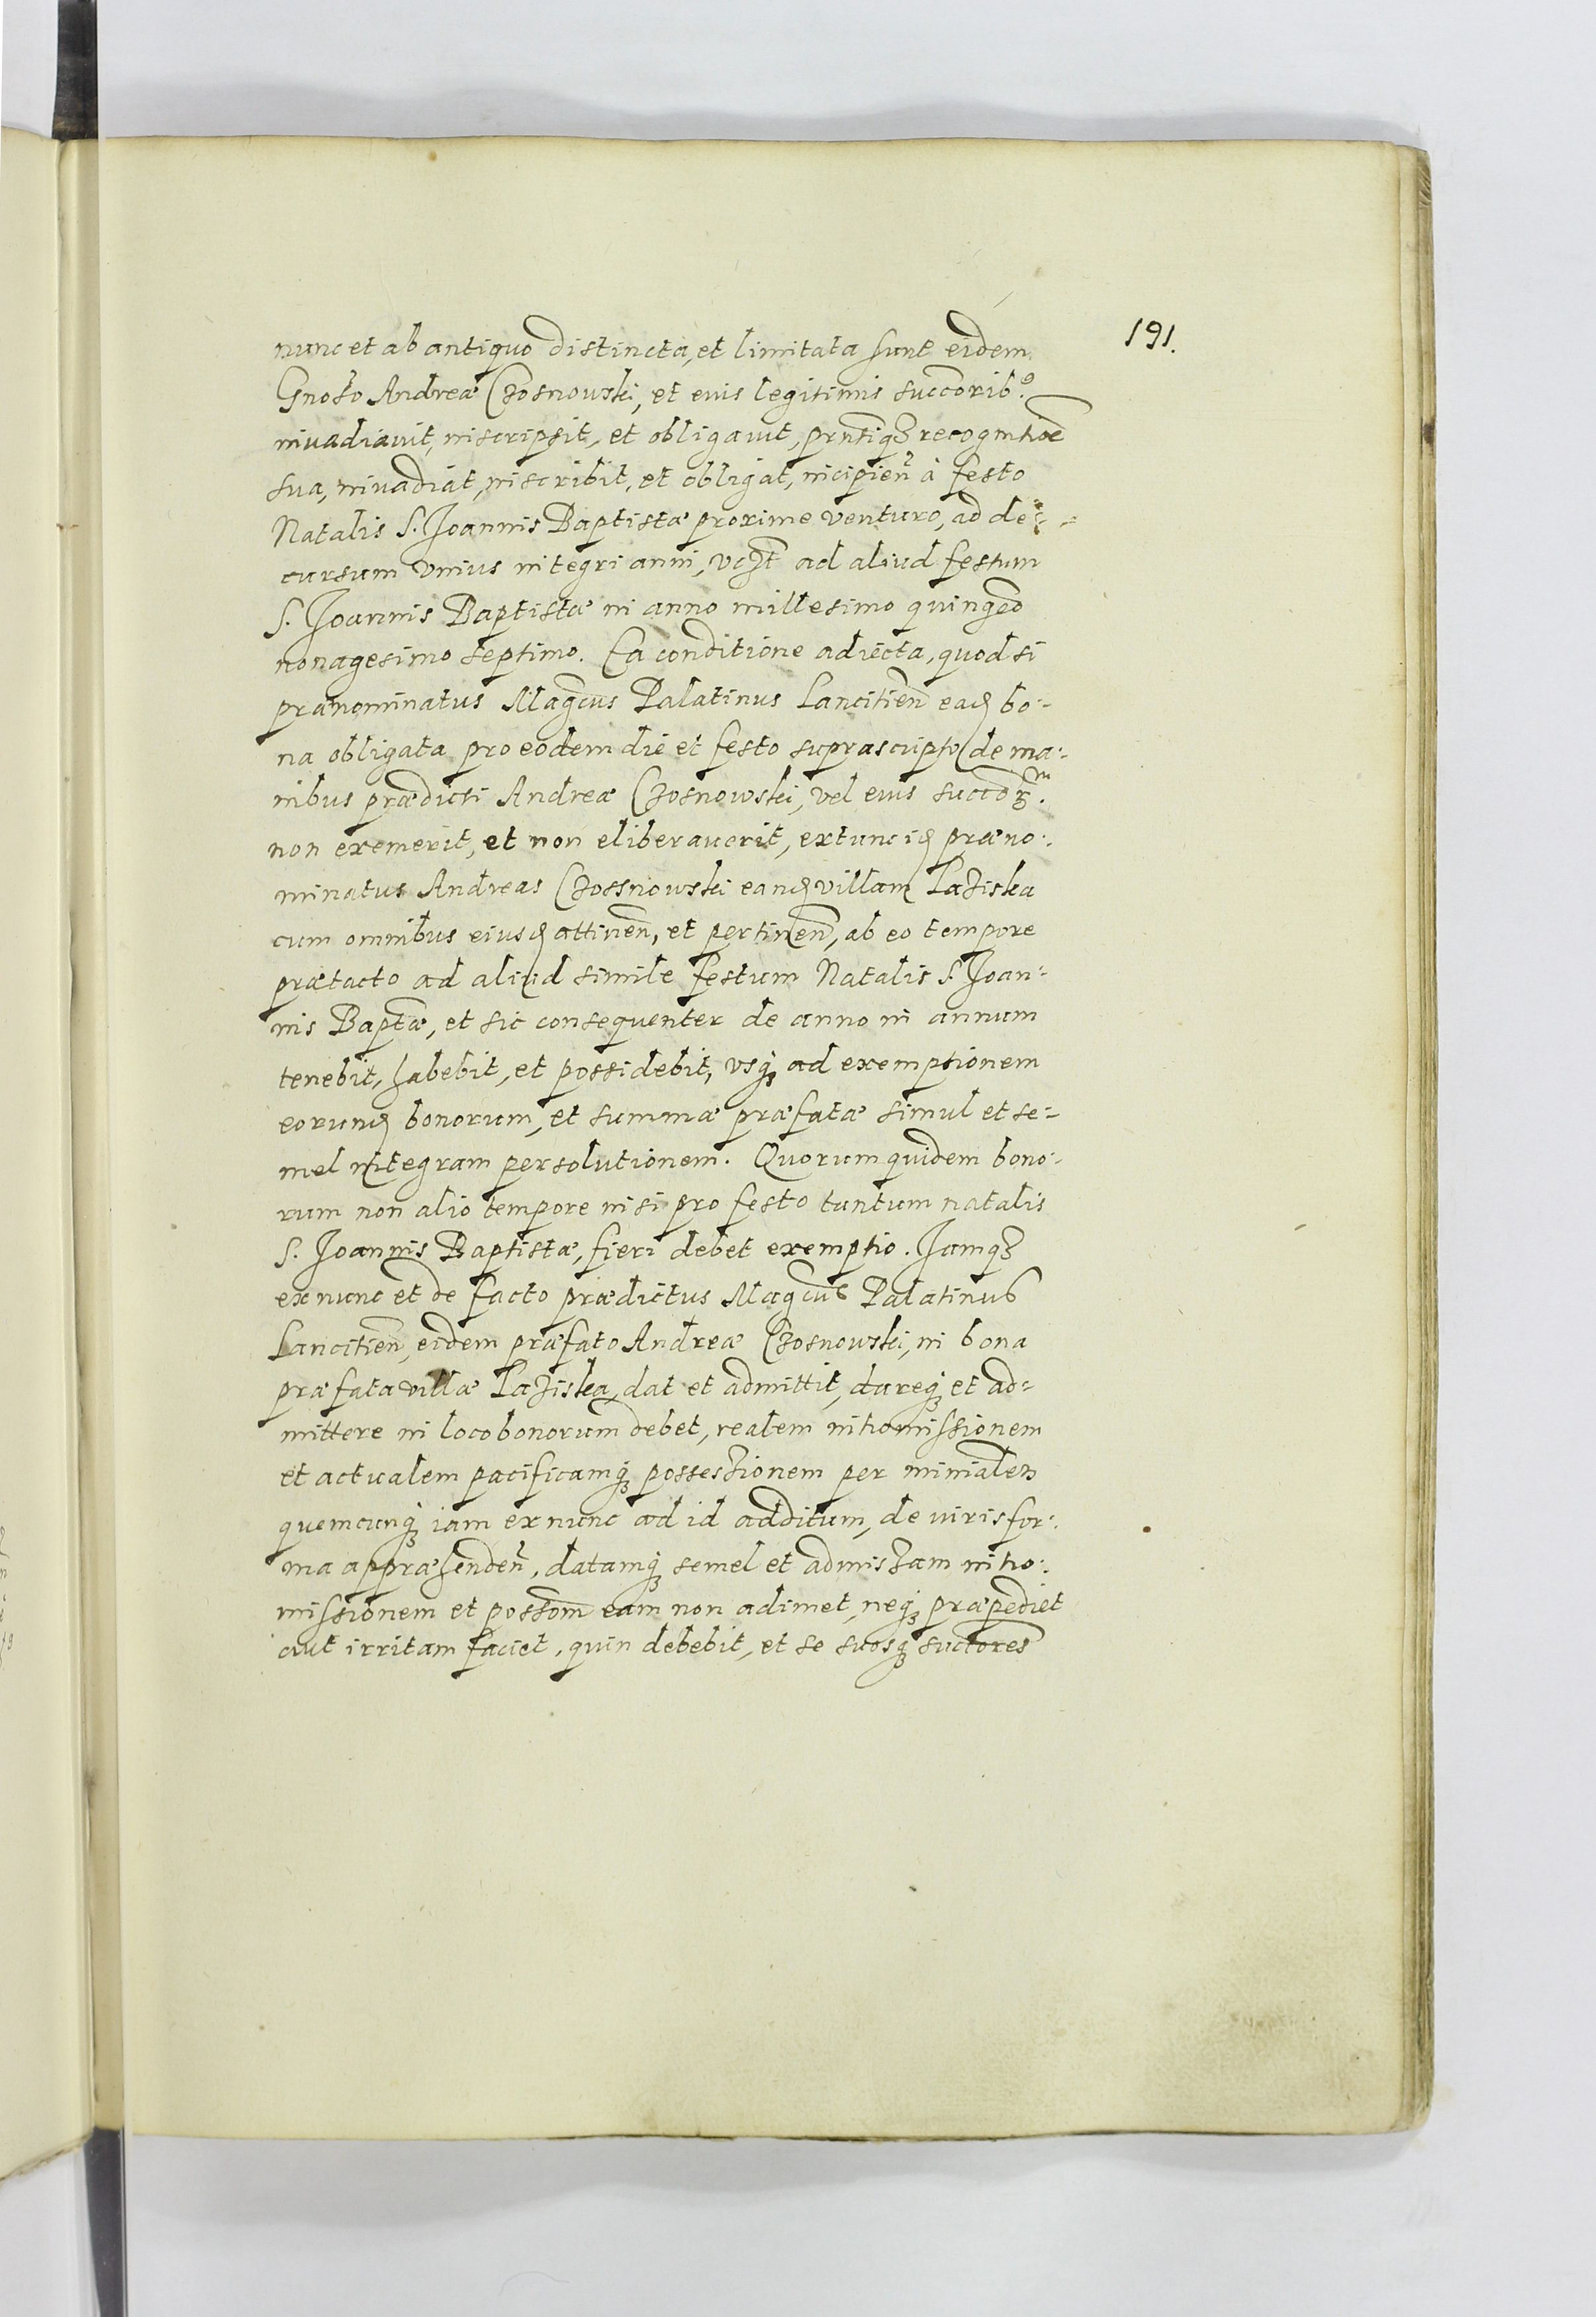 191.
nunc et ab antiquo distincta, et limitata sunt eidem
Gnoso Andreæ Czosnowski, et eius legitimis succorib9
invadiavit, inscripsit, et obligavit, prntiq3 recognitioē
sua, invadiat, inscribit, et obligat, incipień à festo
Natalis S. Joannis Baptistæ proxime venturo, ad de:-
cursum vnius integri anni, vczt ad aliud festum
S. Joannis Baptistæ in anno millesimo quingeo
nonagesimo septimo. Ea conditione adiecta, quod si
prænominatus Magcus Palatinus Lancitien̄ eaq bo:-
na obligata pro eodem die et festo suprascripto de ma:-
nibus prædicti Andreæ Czosnowski, vel eius succor̄m.
non exemerit, et non eliberaverit, extunc iq præno:-
minatus Andreas Czossnowski eanq villam Laziska
cum omnibus eiusq attinen̄, et pertinen̄, ab eo tempore
prætacto ad aliud simile festum Natalis S. Joan:-
nis Baptæ, et sic consequenter de anno in annum
tenebit, habebit, et possidebit, vsq3 ad exemptionem
eorunq bonorum, et summæ præfatæ simul et se:-
mel integram persolutionem. Quorum quidem bono:-
rum non alio tempore nisi pro festo tantum natalis
S. Joannis Baptistæ, fieri debet exemptio. Jamq3
exnunc et de facto prædictus Magcus Palatinus
Lancitien̄, eidem præfato Andreæ Czosnowski, in bona
præfata villæ Laziska, dat et admittit, dareq3 et ad:-
mittere in loco bonorum debet, realem intromissionem
et actualem pacificamq3 possessionem per minialem
quemcunq3 iam exnunc ad id additum, de iuris for:-
ma appræhenden̄, datamq3 semel et admissam intro:-
missionem et possom̄ eam non adimet, neq3 præpediet
aut irritam faciet, quin debebit, et se suosq3 succores